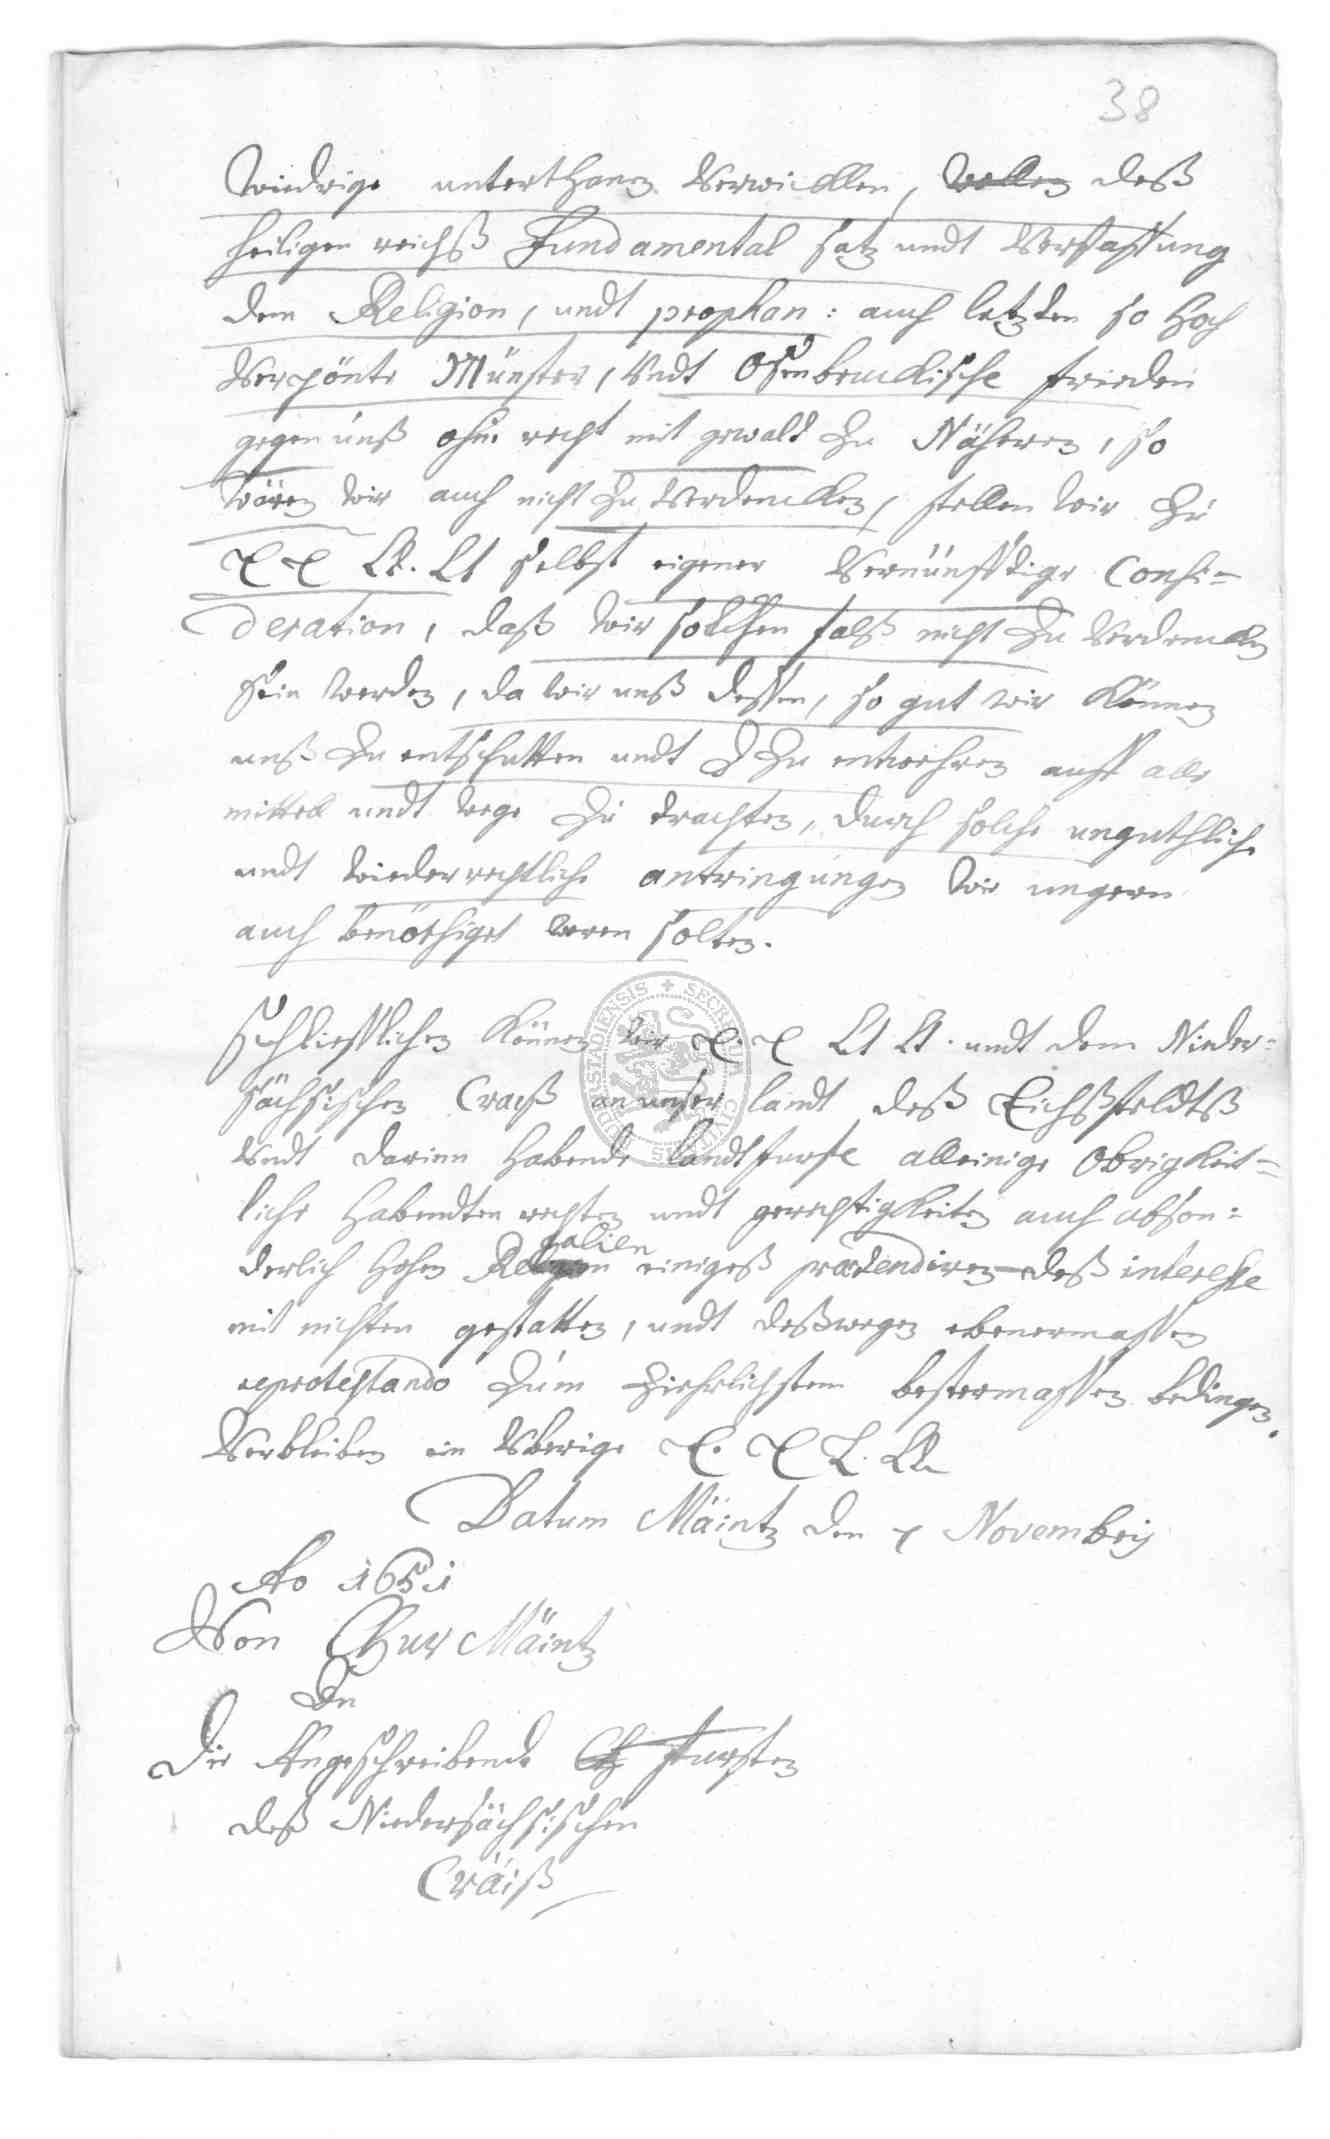 38
Wiedrige unterthanen Verwicklen, wollen deß
heiligen reichß Fundamental satz undt Verfassung
dem Religion, undt prophan: auch letzten so hoch
Verpönte Münster, Vndt Osenbruckische frieden
gegen unß ohn recht mit gewalt zu Näheren, so
wären wir auch nicht zu Verdencken, stellen wir zu
E E LL. Lt selbst eigener Vernünfftige Consi=
deration, daß wir solchen falß nicht zu Verdencken
sein werden, da wir unß dessen, so gut wir können
unß zu entschutten undt zu entwehren auff alle
mittell undt wege zu trachten, durch solche unguthliche
undt wiederrechtliche antringungen wir ungern
auch benöthiget weren solten.
Schließlichen können wir E. E Lt Lt. undt dem Nieder=
sächsischen Craiß an unser landt deß Eichßfeldtß
Vndt darinn habende landtfurstl alleinige Obrigkeit=
liche habendten rechten undt gerechtigkeiten auch abson=
derlich hohen Regalien einigeß praetendiren deß interesse
mit nichten gestatten, undt deßwegen ebenermassen
reprotestando zum zierlichstem bestermassen bedingen.
Verbleiben ein Vberige E. E L. LL
Datum Mäintz den 7 Novembris
Ao 1651
Von Chur Mäintz
An
Die Außschreibende Fursten
deß Niedersächsischen
Cräiß
SECRETUM CIVITATIS DUDERSTADIENSIS